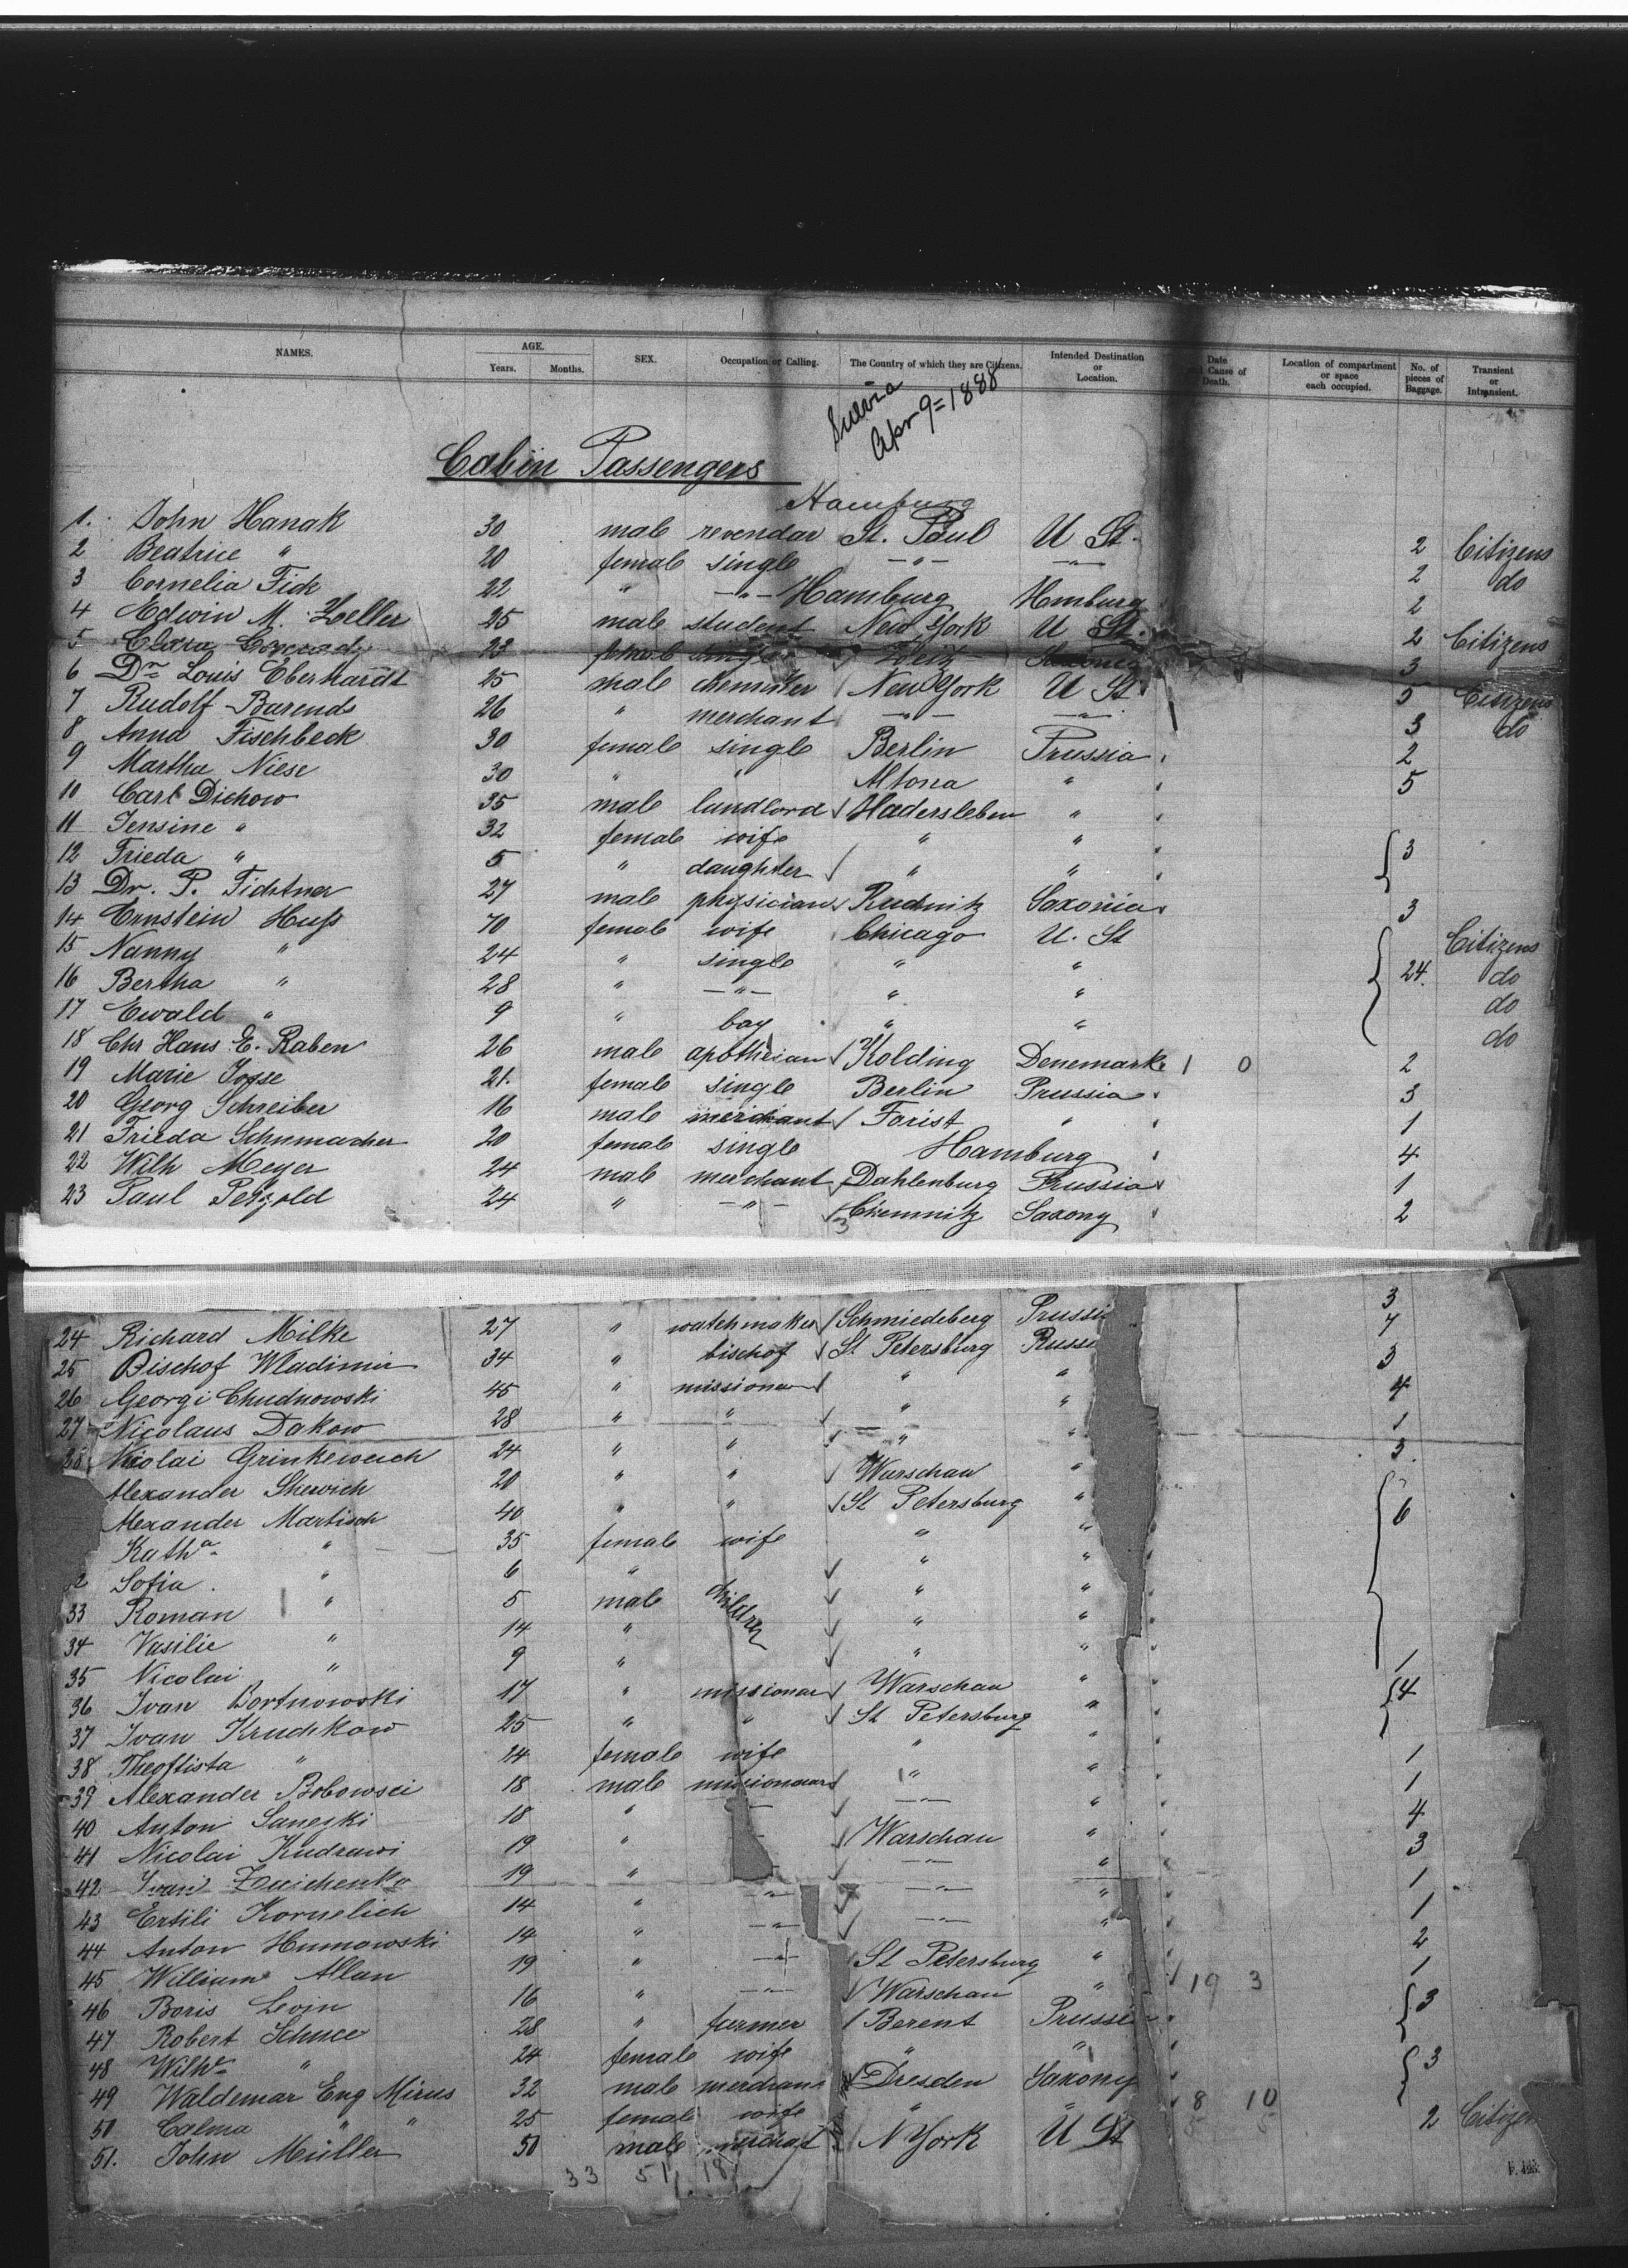 NAMES. AGE. Years. Months. SEX. Occupation or Calling. The Country of which they are Citizens. Intended Destination or Location. Date Cause of Death. Location of compartment or space each occupied. No. of pieces of Baggage. Transient or Intransient.
Suevia
Apr 9=1888
Cabin Passengers
Hamburg
1. John Hanak 30 male revendar St. Paul U St. 2 Citizens
2 Beatrice " 20 female single -"- -"- 2 do
3 Cornelia Fick 22 " -"- Hamburg Hmburg 2
4 Edwin M. Zoeller 25 male student New York U St. 2 Citizens
5 Clara 23 female single Zeitz Saxony 3
6 Dr Louis Eberhardt 25 male chemiker New York U St 5 Citizens
7 Rudolf Barends 26 " merchant -"- -"- 3 do
8 Anna Fischbeck 30 female single Berlin Prussia 2
9 Martha Niese 30 " " Altona " 5
10 Carl Dichow 35 male landlord Hadersleben "
11 Jensine " 32 female wife " " 3
12 Frieda " 5 " daughter " "
13 Dr. P. Fichtner 27 male physician Rudnitz Saxonia 3
14 Ernstein Huß 70 female wife Chicago U. St Citizens
15 Nanny " 24 " single " " 24. do
16 Bertha " 28 " -"- " " do
17 Ewald " 9 " boy " " do
18 Chr Hans E. Raben 26 male apothecian Kolding Denemark 1 0 2
19 Marie Josse 21. female single Berlin Prussia 3
20 Georg Schreiber 16 male merchant Forist " 1
21 Frieda Schumacher 20 female single Hamburg 4
22 Wilh Meyer 24 male merchant Dahlenburg Prussia 1
23 Paul Petzold 24 " -"- Chemnitz Saxony 2
3
24 Richard Milke 27 " watchmaker Schmiedeberg Prussi 3
25 Bischof Wladimir 34 " bischof St Petersburg Russi 7
26 Georgi Chudnowski 45 " missionar " " 5
27 Nicolaus Dakow 28 " " " " 4
28 Nicolai Grinkewich 24 " " -"- " 1
Alexander Shewich 20 " " Warschau " 3.
Alexander Martisch 40 " " St Petersburg " 6
Katha " 35 female wife " "
2 Sofia. " 6 " " "
33 Roman " 5 male children " "
34 Vasilie " 14 " " "
35 Nicolai " 9 " " "
36 Ivan Bortnowski 17 " missionar Warschau " 1
37 Ivan Kruchkow 25 " " St Petersburg " 4
38 Theoftista " 24 female wife " "
39 Alexander Bobowsci 18 male missionaar " " 1
40 Anton Saneyki 18 " - -"- " 1
41 Nicolai Kudrawi 19 " - Warschau " 4
42 Ivan Zuichenko 19 " -"- " 3
43 Ertili Kornelich 14 " -"- -"- " 1
44 Anton Humowski 14 " -"- -"- " 1
45 William Allan 19 " -"- St Petersburg " 19 3 2
46 Boris Levin 16 " -"- Warschau " 1
47 Robert Schuce 28 " farmer Berent Prussi 3
48 Wilhe " 24 female wife " "
49 Waldemar Eng Mirus 32 male merchan Dresden Saxony 3
50 Calma " " 25 female wife " " 8 10
51. John Müller 50 male merchat N York U St 2 Citizen
33 51 18